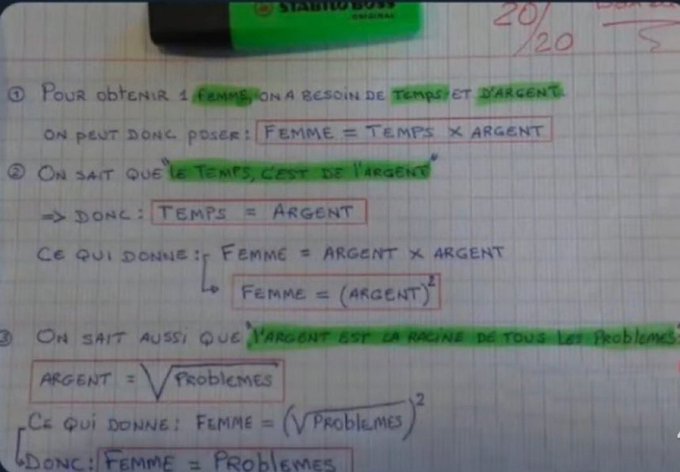 STABILO BOSS
ORIGINAL
20/20
① POUR ObTENIR 1 FEMME, ON A BESOIN DE TEMPS ET D'ARGENT.
ON PEUT DONC POSER: FEMME = TEMPS X ARGENT
② ON SAIT QUE "LE TEMPS, C'EST DE l'ARGENT"
=> DONC: TEMPS = ARGENT
CE QUI DONNE: FEMME = ARGENT X ARGENT
FEMME = (ARGENT)²
③ ON SAIT AUSSI QUE "l'ARGENT EST LA RACINE DE TOUS LES PROblEMES"
ARGENT = √PROblEMES
CE QUI DONNE: FEMME = (√PROblEMES)²
DONC: FEMME = PROblEMES